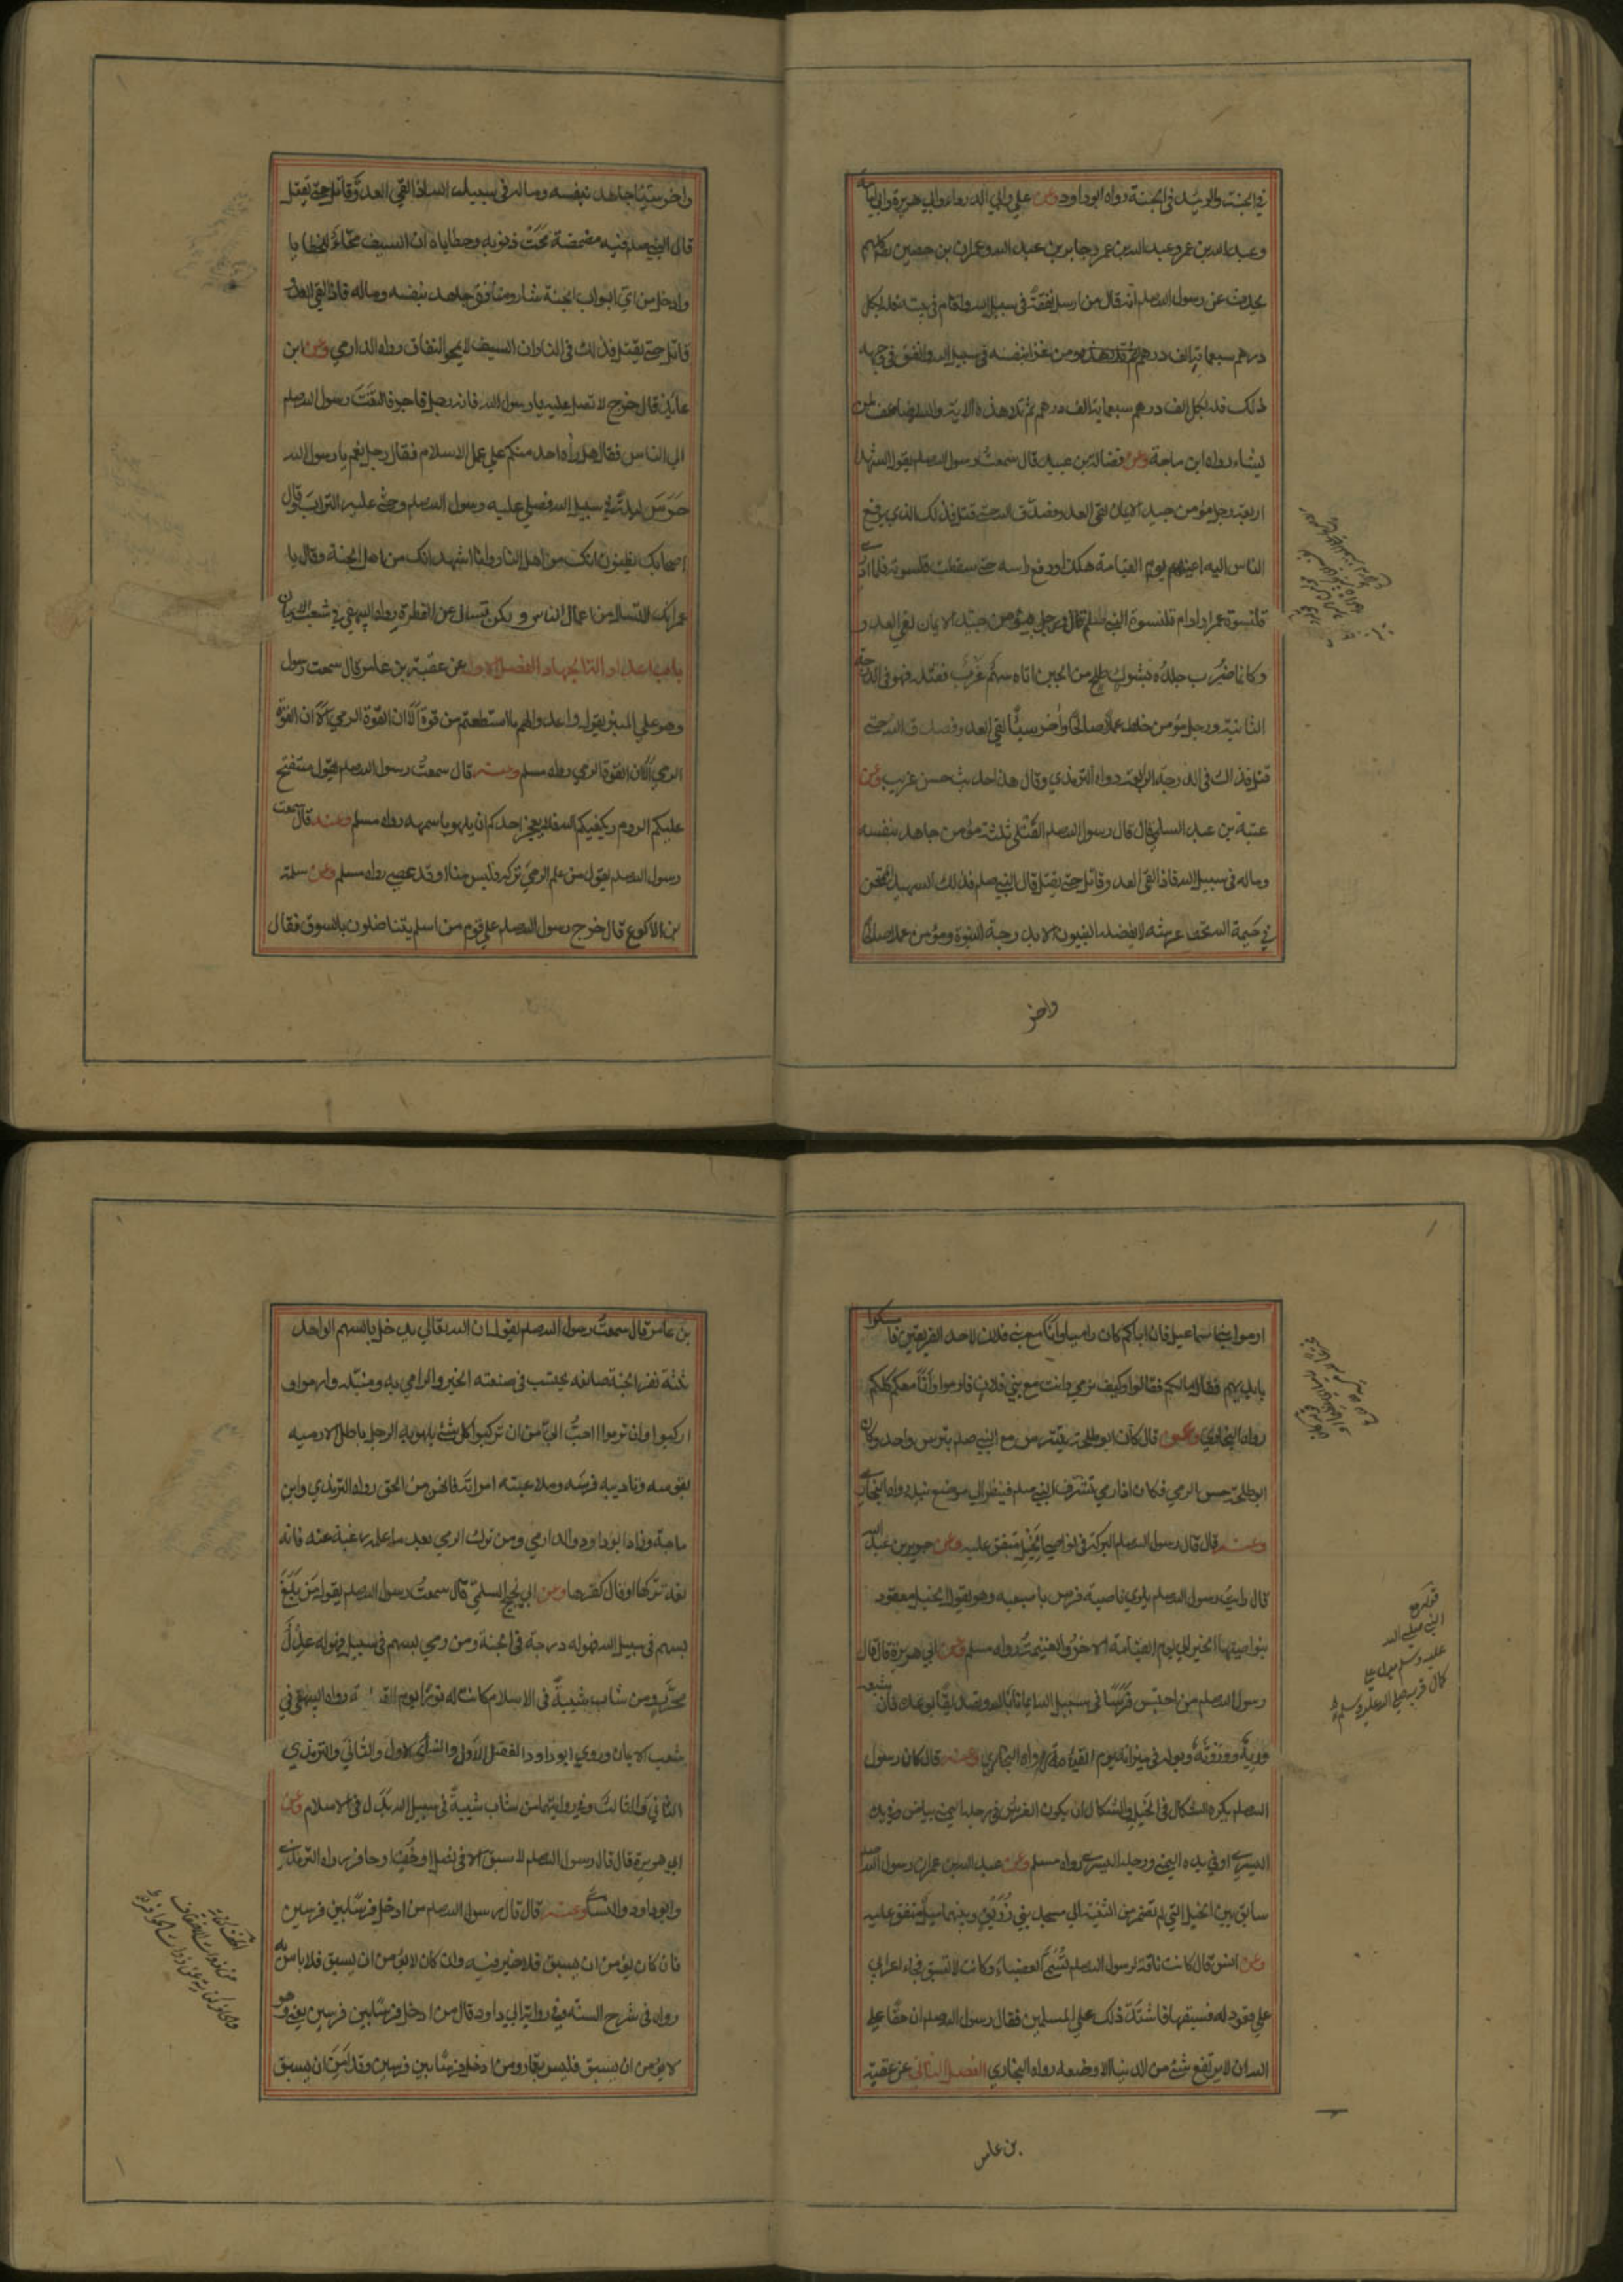 في الجنة والوئيد في الجنة رواه ابو داود وعن علي وابي الدرداء وابي هريرة وابي امامة
وعبد الله بن عمر وعبد الله بن عمرو جابر بن عبد الله وعمران بن حصين كلهم
يحدث عن رسول الله صلعم انه قال من ارسل نفقة في سبيل الله واقام في بيته فله بكل
درهم سبعماية الف درهم ومن غزا بنفسه في سبيل الله وانفق في وجهه
ذلك فله بكل الف درهم سبعماية الف درهم ثم تلا هذه الاية والله يضاعف لمن
يشاء رواه ابن ماجة وعن فضالة بن عبيد قال سمعت رسول الله صلعم يقول الشهدا
اربعة رجل مؤمن جيد الايمان لقي العدو فصدق الله حتى قتل فذلك الذي يرفع
الناس اليه اعينهم يوم القيامة هكذا ورفع راسه حتى سقطت قلنسوته فلا ادري
قلنسوة عمر اراد ام قلنسوة النبي صلعم قال ورجل مؤمن جيد الايمان لقي العدو
وكانما ضرب جلده بشوك طلح من الجبن اتاه سهم غرب فقتله فهو في الدرجة
الثانية ورجل مؤمن خلط عملا صالحا واخر سيئا لقي العدو فصدق الله حتى
قتل فذلك في الدرجة الرابعة رواه الترمذي وقال هذا حديث حسن غريب وعن
عتبة بن عبد السلمي قال قال رسول الله صلعم القتلى ثلثة مؤمن جاهد بنفسه
وماله في سبيل الله فاذا لقي العدو قاتل حتى يقتل قال النبي صلعم فذلك الشهيد الممتحن
في خيمة الله تحت عرشه لا يفضله النبيون الا بدرجة النبوة ومؤمن عملا صالحا
واخر
واخر سيئا جاهد بنفسه وماله في سبيل الله اذا لقي العدو قاتل حتى يقتل
قال النبي صلعم فيه مضمضة محت ذنوبه وخطاياه ان السيف محاء للخطايا
وادخل من اي ابواب الجنة شاء ومنافق جاهد بنفسه وماله فاذا لقي العدو
قاتل حتى يقتل فذلك في النار ان السيف لا يمحو النفاق رواه الدارمي وعن ابن
عايذ قال خرج لا تصل عليه يا رسول الله فانه رجل فاجر فالتفت رسول الله صلعم
الى الناس فقال هل راه احد منكم على عمل الاسلام فقال رجل نعم يا رسول الله
حرس ليلة في سبيل الله فصلى عليه رسول الله صلعم وحثى عليه التراب وقال
اصحابك يظنون انك من اهل النار وانا اشهد انك من اهل الجنة وقال يا
عمر انك لا تسال عن اعمال الناس ولكن تسال عن الفطرة رواه البيهقي في شعب الايمان
باب اعداد الة الجهاد الفصل الاول عن عقبة بن عامر قال سمعت رسول
وهو على المنبر يقول واعدوا لهم ما استطعتم من قوة الا ان القوة الرمي الا ان القوة
الرمي الا ان القوة الرمي رواه مسلم وعنه قال سمعت رسول الله صلعم يقول ستفتح
عليكم الروم ويكفيكم الله فلا يعجز احدكم ان يلهو باسهمه رواه مسلم وعنه قال سمعت
رسول الله صلعم يقول من علم الرمي ثم تركه فليس منا او قد عصى رواه مسلم وعن سلمة
بن الاكوع قال خرج رسول الله صلعم على قوم من اسلم يتناضلون بالسوق فقال
ارموا بني اسماعيل فان اباكم كان راميا وانا مع بني فلان لاحد الفريقين فامسكوا
بايديهم فقال ما لكم فقالوا وكيف نرمي وانت مع بني فلان قال ارموا وانا معكم كلكم
رواه البخاري وعن قال كان ابو طلحة يتترس مع النبي صلعم بترس واحد وكان
ابو طلحة حسن الرمي فكان اذا رمى تشرف النبي صلعم فينظر الى موضع نبله رواه البخاري
وعنه قال قال رسول الله صلعم البركة في نواصي الخيل متفق عليه وعن جرير بن عبد الله
قال رايت رسول الله صلعم يلوي ناصية فرس باصبعيه وهو يقول الخيل معقود
بنواصيها الخير الى يوم القيامة الاجر والغنيمة رواه مسلم وعن ابي هريرة قال قال
رسول الله صلعم من احتبس فرسا في سبيل الله ايمانا بالله وتصديقا بوعده فان شبعه
وريه وروثه وبوله في ميزانه يوم القيمة رواه البخاري وعنه قال كان رسول
الله صلعم يكره الشكال في الخيل والشكال ان يكون الفرس في رجله اليمنى بياض وفي يده
اليسرى او في يده اليمنى ورجله اليسرى رواه مسلم وعن عبد الله بن عمر ان رسول الله صلعم
سابق بين الخيل التي لم تضمر من الثنية الى مسجد بني زريق وبينهما ميل متفق عليه
وعن انس قال كانت ناقة لرسول الله صلعم تسمى العضباء وكانت لا تسبق فجاء اعرابي
على قعود له فسبقها فاشتد ذلك على المسلمين فقال رسول الله صلعم ان حقا على
الله ان لا يرتفع شيء من الدنيا الا وضعه رواه البخاري الفصل الثاني عن عقبة
بن عامر
بن عامر قال سمعت رسول الله صلعم يقول ان الله تعالى يدخل بالسهم الواحد
ثلثة نفر الجنة صانعه يحتسب في صنعته الخير والرامي به ومنبله وارموا و
اركبوا وان ترموا احب الي من ان تركبوا كل شيء يلهو به الرجل باطل الا رميه
بقوسه وتاديبه فرسه وملاعبته امراته فانهن من الحق رواه الترمذي وابن
ماجة وزاد ابو داود والدارمي ومن ترك الرمي بعد ما علمه رغبة عنه فانه
نعمة تركها او قال كفرها وعن ابي نجيح السلمي قال سمعت رسول الله صلعم يقول من بلغ
بسهم في سبيل الله فهو له درجة في الجنة ومن رمى بسهم في سبيل فهو له عدل
محرر ومن شاب شيبة في الاسلام كانت له نورا يوم القيمة رواه البيهقي في
شعب الايمان وروى ابو داود الفصل الاول والنسائي الاول والثاني والترمذي
الثاني والثالث وفي روايتهما من شاب شيبة في سبيل الله بدل في الاسلام وعن
ابي هريرة قال قال رسول الله صلعم لا سبق الا في نصل او خف او حافر رواه الترمذي
وابو داود والنسائي وعنه قال قال رسول الله صلعم من ادخل فرسا بين فرسين
فان كان يؤمن ان يسبق فلا خير فيه وان كان لا يؤمن ان يسبق فلا باس به
رواه في شرح السنة وفي رواية ابي داود قال من ادخل فرسا بين فرسين يعني وهو
لا يؤمن ان يسبق فليس بقمار ومن ادخل فرسا بين فرسين وقد امن ان يسبق